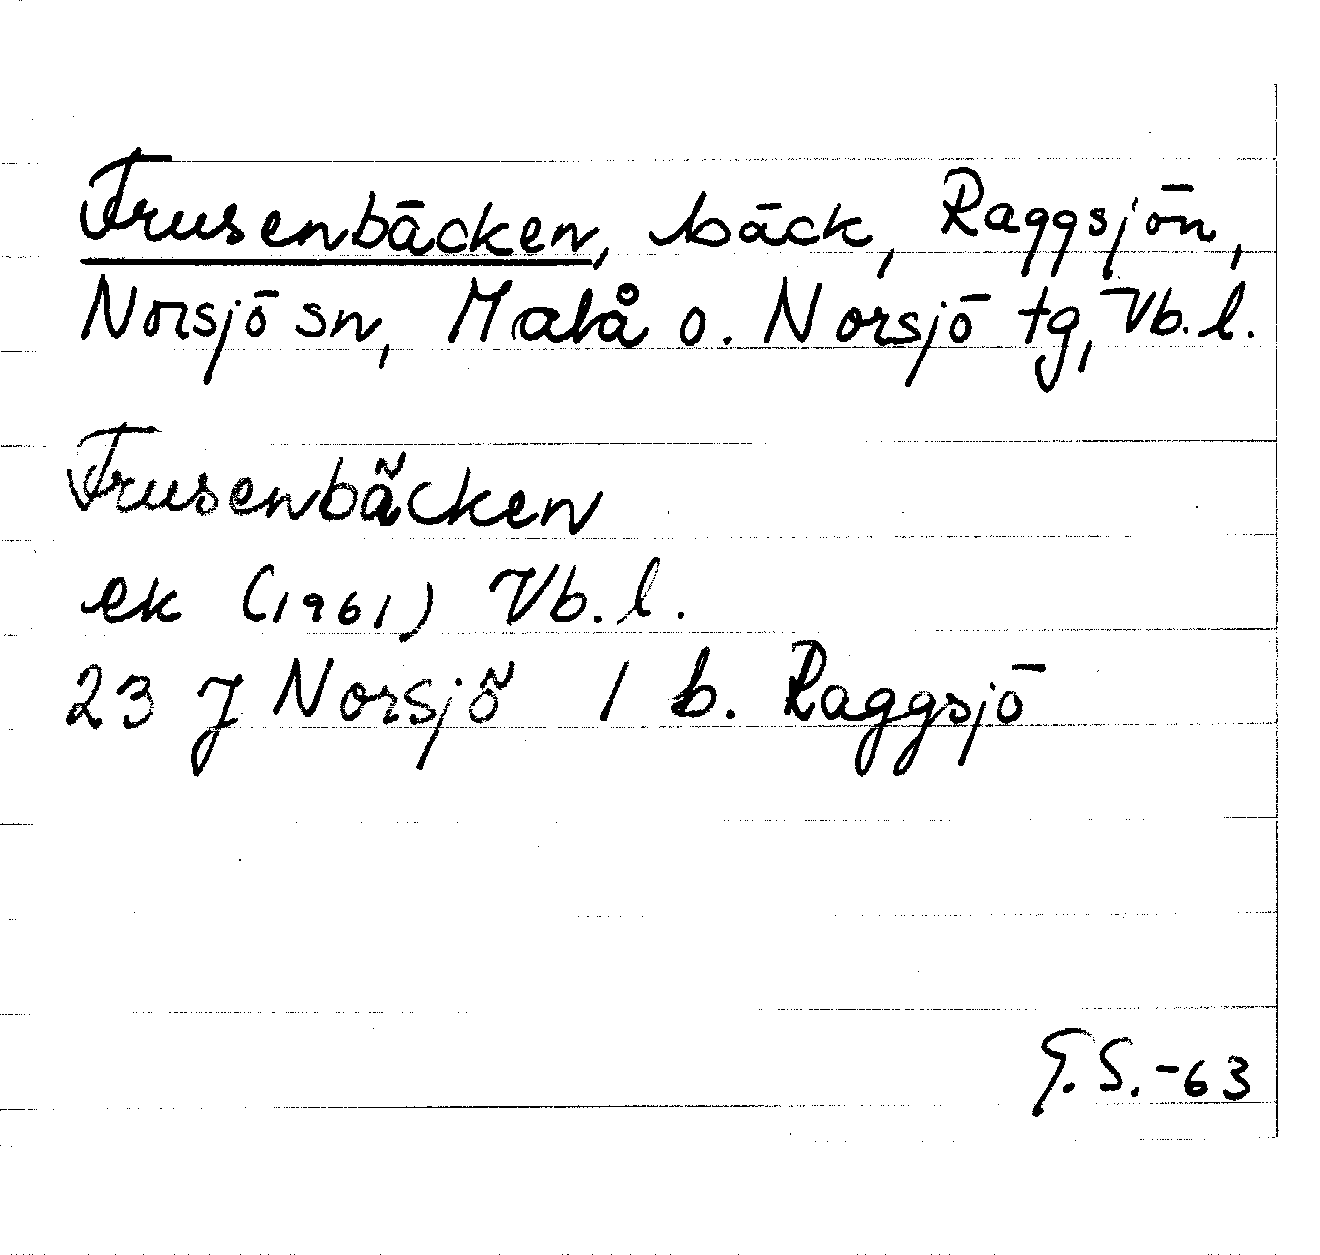 Frusenbäcken, bäck, Raggsjön,
Norsjö sn, Malå o. Norsjö tg, Vb. l.
Frusenbäcken
ek (1961) Vb. l.
23 J Norsjö 1 b. Raggsjö
G. S. -63